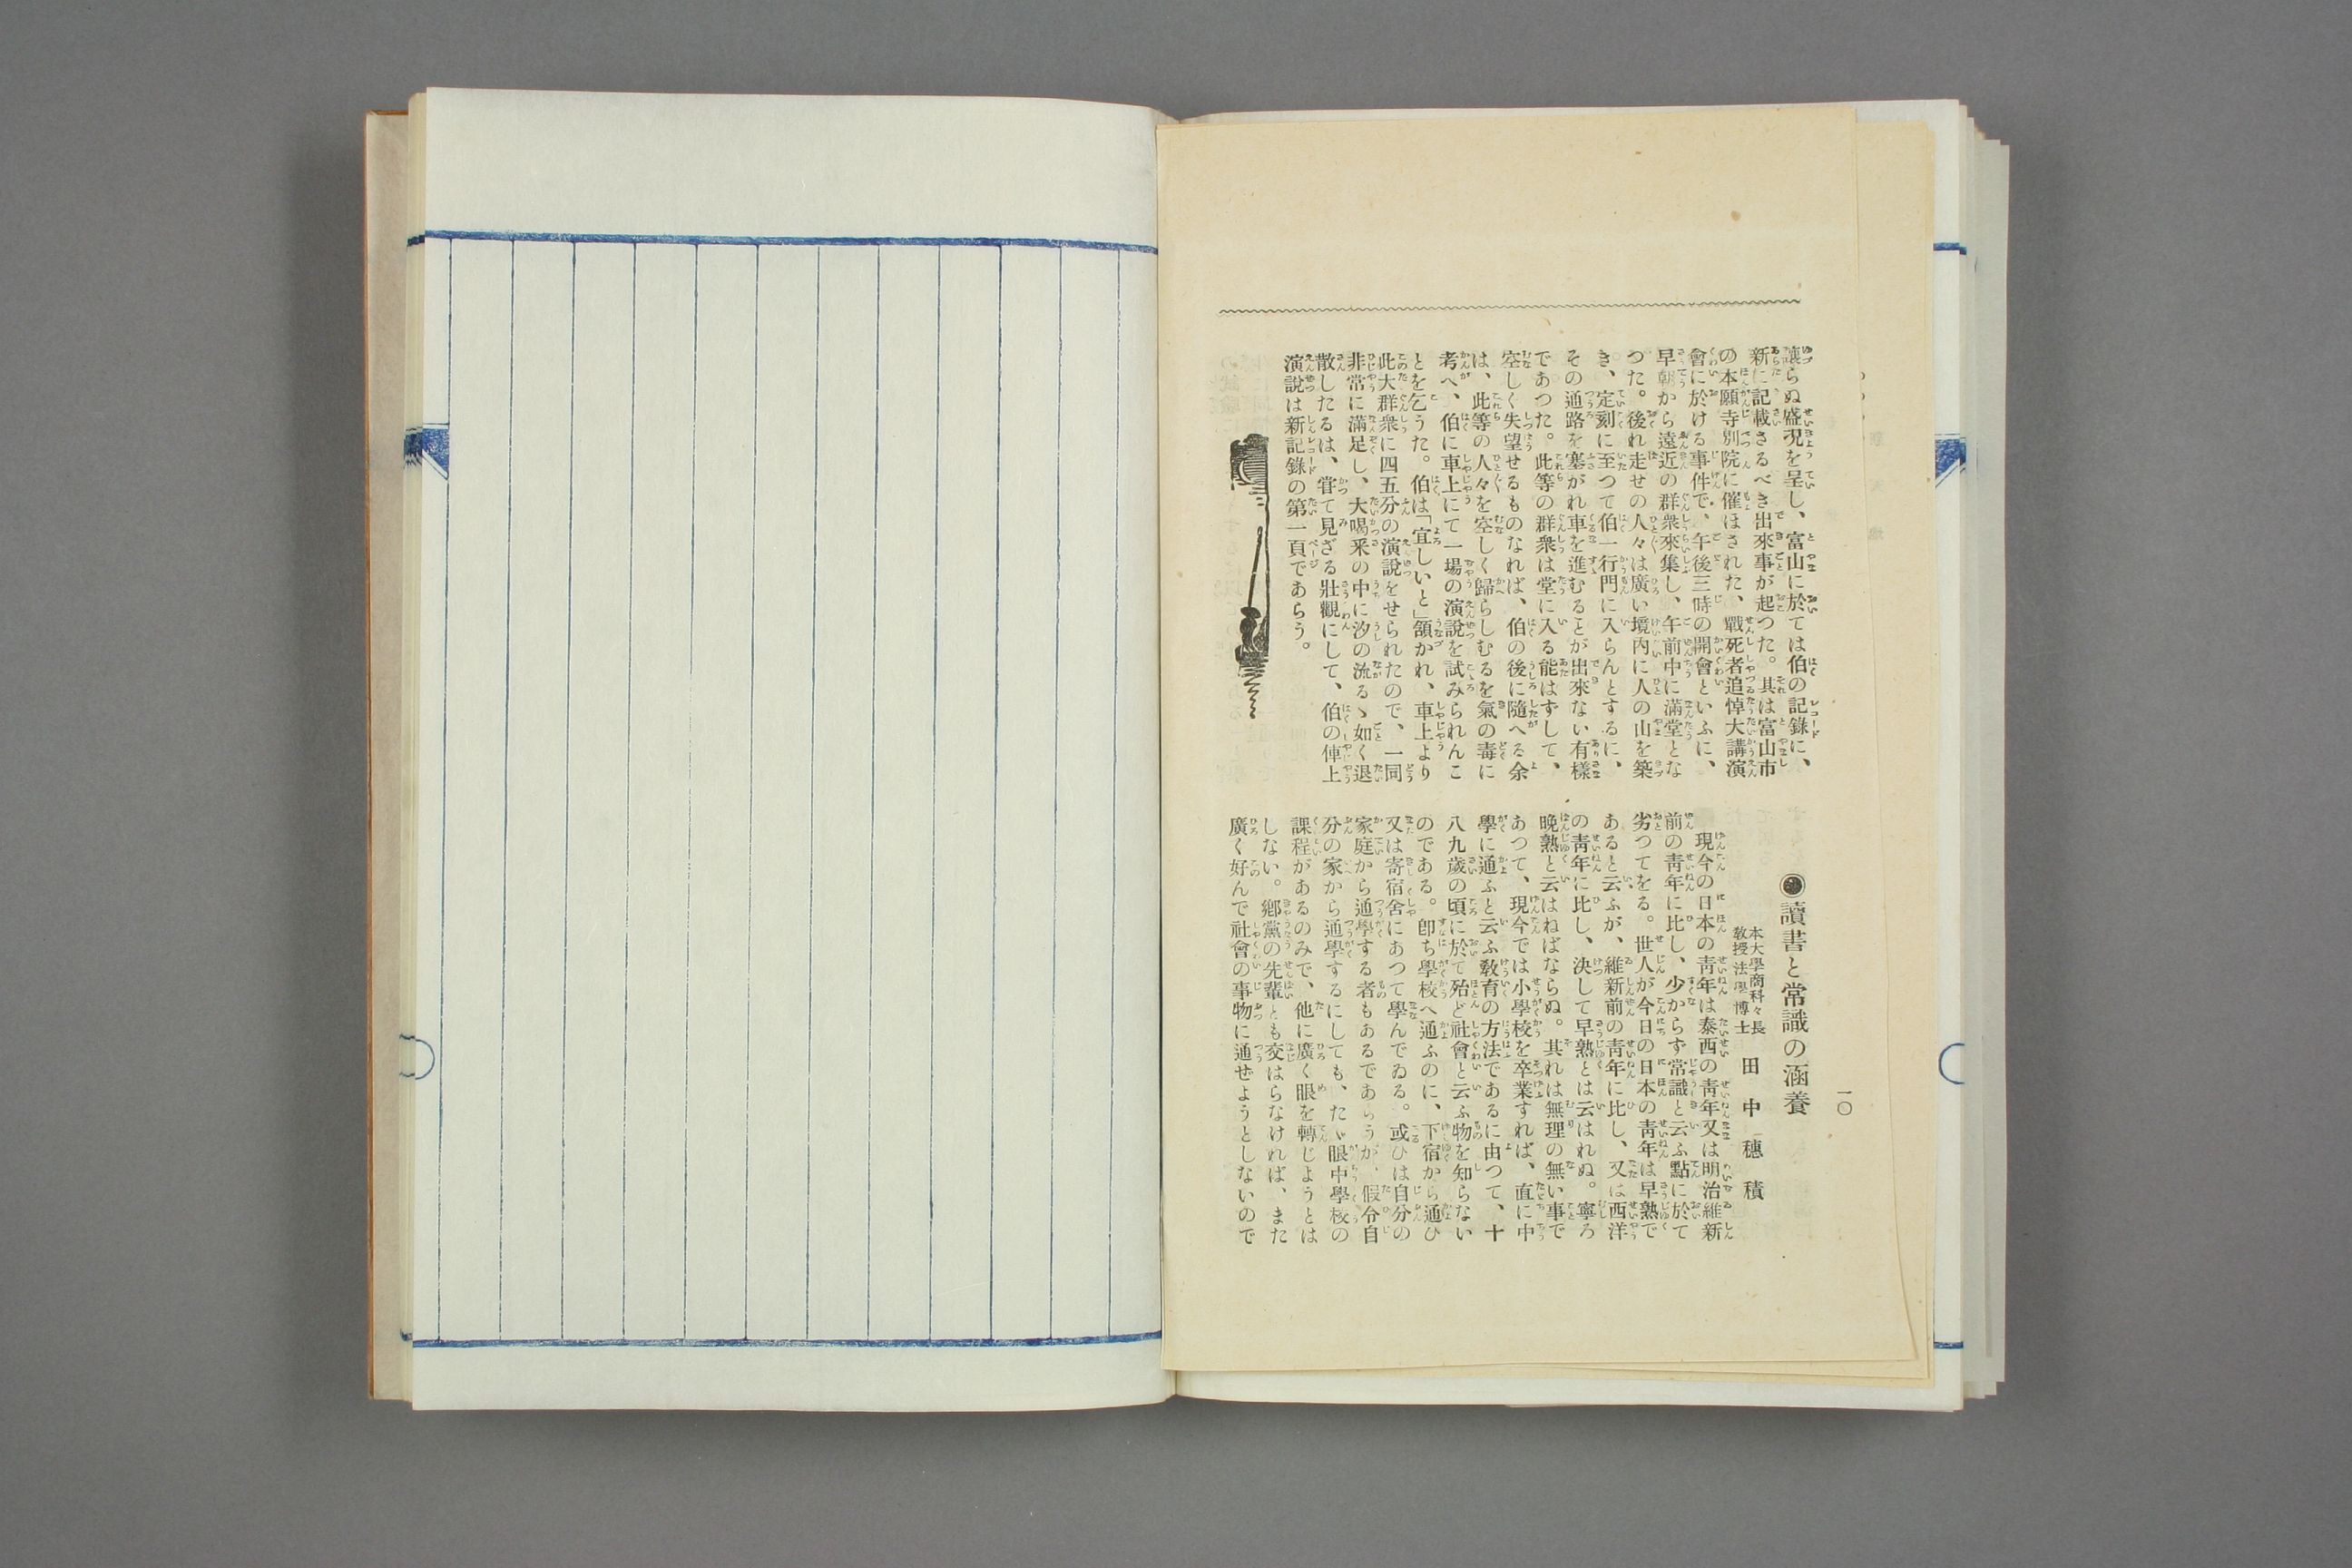 讓らぬ盛况を呈し、富山に於ては伯の記錄に、
新に記載さるべき出來事が起つた。其は富山市
の本願寺別院に催ほされた、戰死者追悼大講演
會に於ける事件で、午後三時の開會といふに、
早朝から遠近の群衆來集し、午前中に滿堂とな
つた。後れ走せの人々は廣い境內に人の山を築
き、定刻に至つて伯一行門に入らんとするに、
その通路を塞がれ車を進むることが出來ない有樣
であつた。此等の群衆は堂に入る能はずして、
空しく失望せるものなれば、伯の後に隨へる余
は、此等の人々を空しく歸らしむるを氣の毒に
考へ、伯に車上にて一場の演說を試みられんこ
とを乞うた。伯は「宜しいと」頷かれ、車上より
此大群衆に四五分の演說をせられたので、一同
非常に滿足し、大喝釆の中に汐の流るゝ如く退
散したるは、甞て見ざる壯觀にして、伯の俥上
演說は新記錄の第一頁であらう。
一〇
◉讀書と常識の涵養
本大學商科々長
敎授法學博士
田中穗積
現今の日本の靑年は泰西の靑年又は明治維新
前の靑年に比し、少からず常識と云ふ點に於て
劣つてをる。世人が今日の日本の靑年は早熟で
あると云ふが、維新前の靑年に比し、又は西洋
の靑年に比し、決して早熟とは云はれぬ。寧ろ
晚熟と云はねばならぬ。其れは無理の無い事で
あつて、現今では小學校を卒業すれば、直に中
學に通ふと云ふ敎育の方法であるに由つて、十
八九歲の頃に於て殆ど社會と云ふ物を知らない
のである。卽ち學校へ通ふのに、下宿から通ひ
又は寄宿舍にあつて學んでゐる。或ひは自分の
家庭から通學する者もあるであらうが、假令自
分の家から通學するにしても、たゞ眼中學校の
課程があるのみで、他に廣く眼を轉じようとは
しない。鄕黨の先輩とも交はらなければ、また
廣く好んで社會の事物に通ぜようとしないので